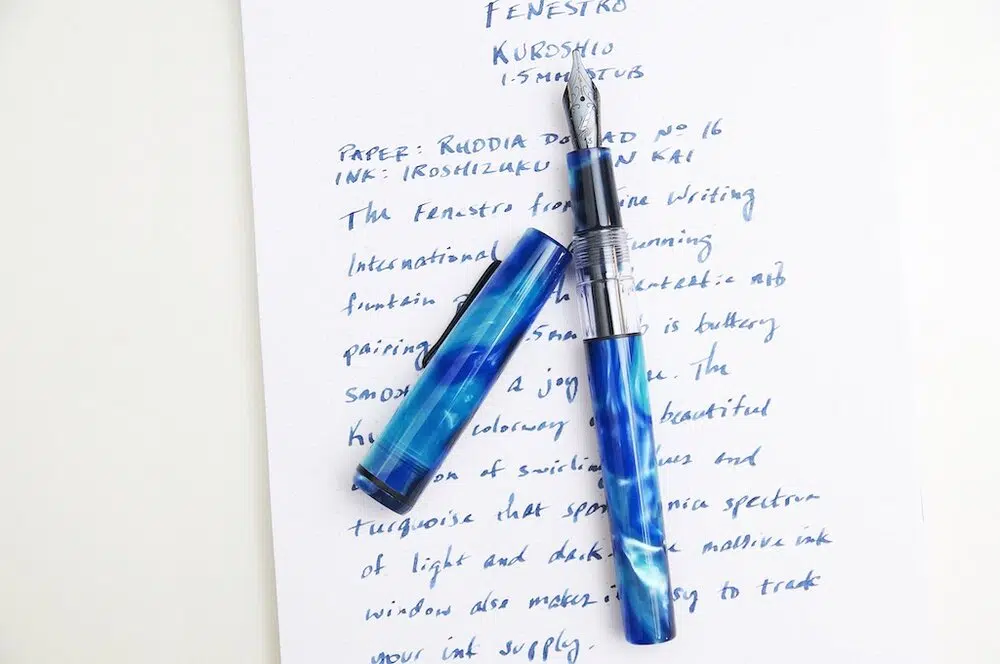 FENESTRO
KUROSHIO
1.5MM STUB
PAPER: RHODIA DO AD No 16
INK: IROSHIZUKU N KAI
The Fenestro from ine Writing
International unning
fountain th antastic nib
pairing .5mm b is buttery
smoo a joy e. The
Ku colorway beautiful
on of swirling lues and
turquoise that span nice spectrum
of light and dark. e massive ink
window also makes i sy to track
your ink supply.